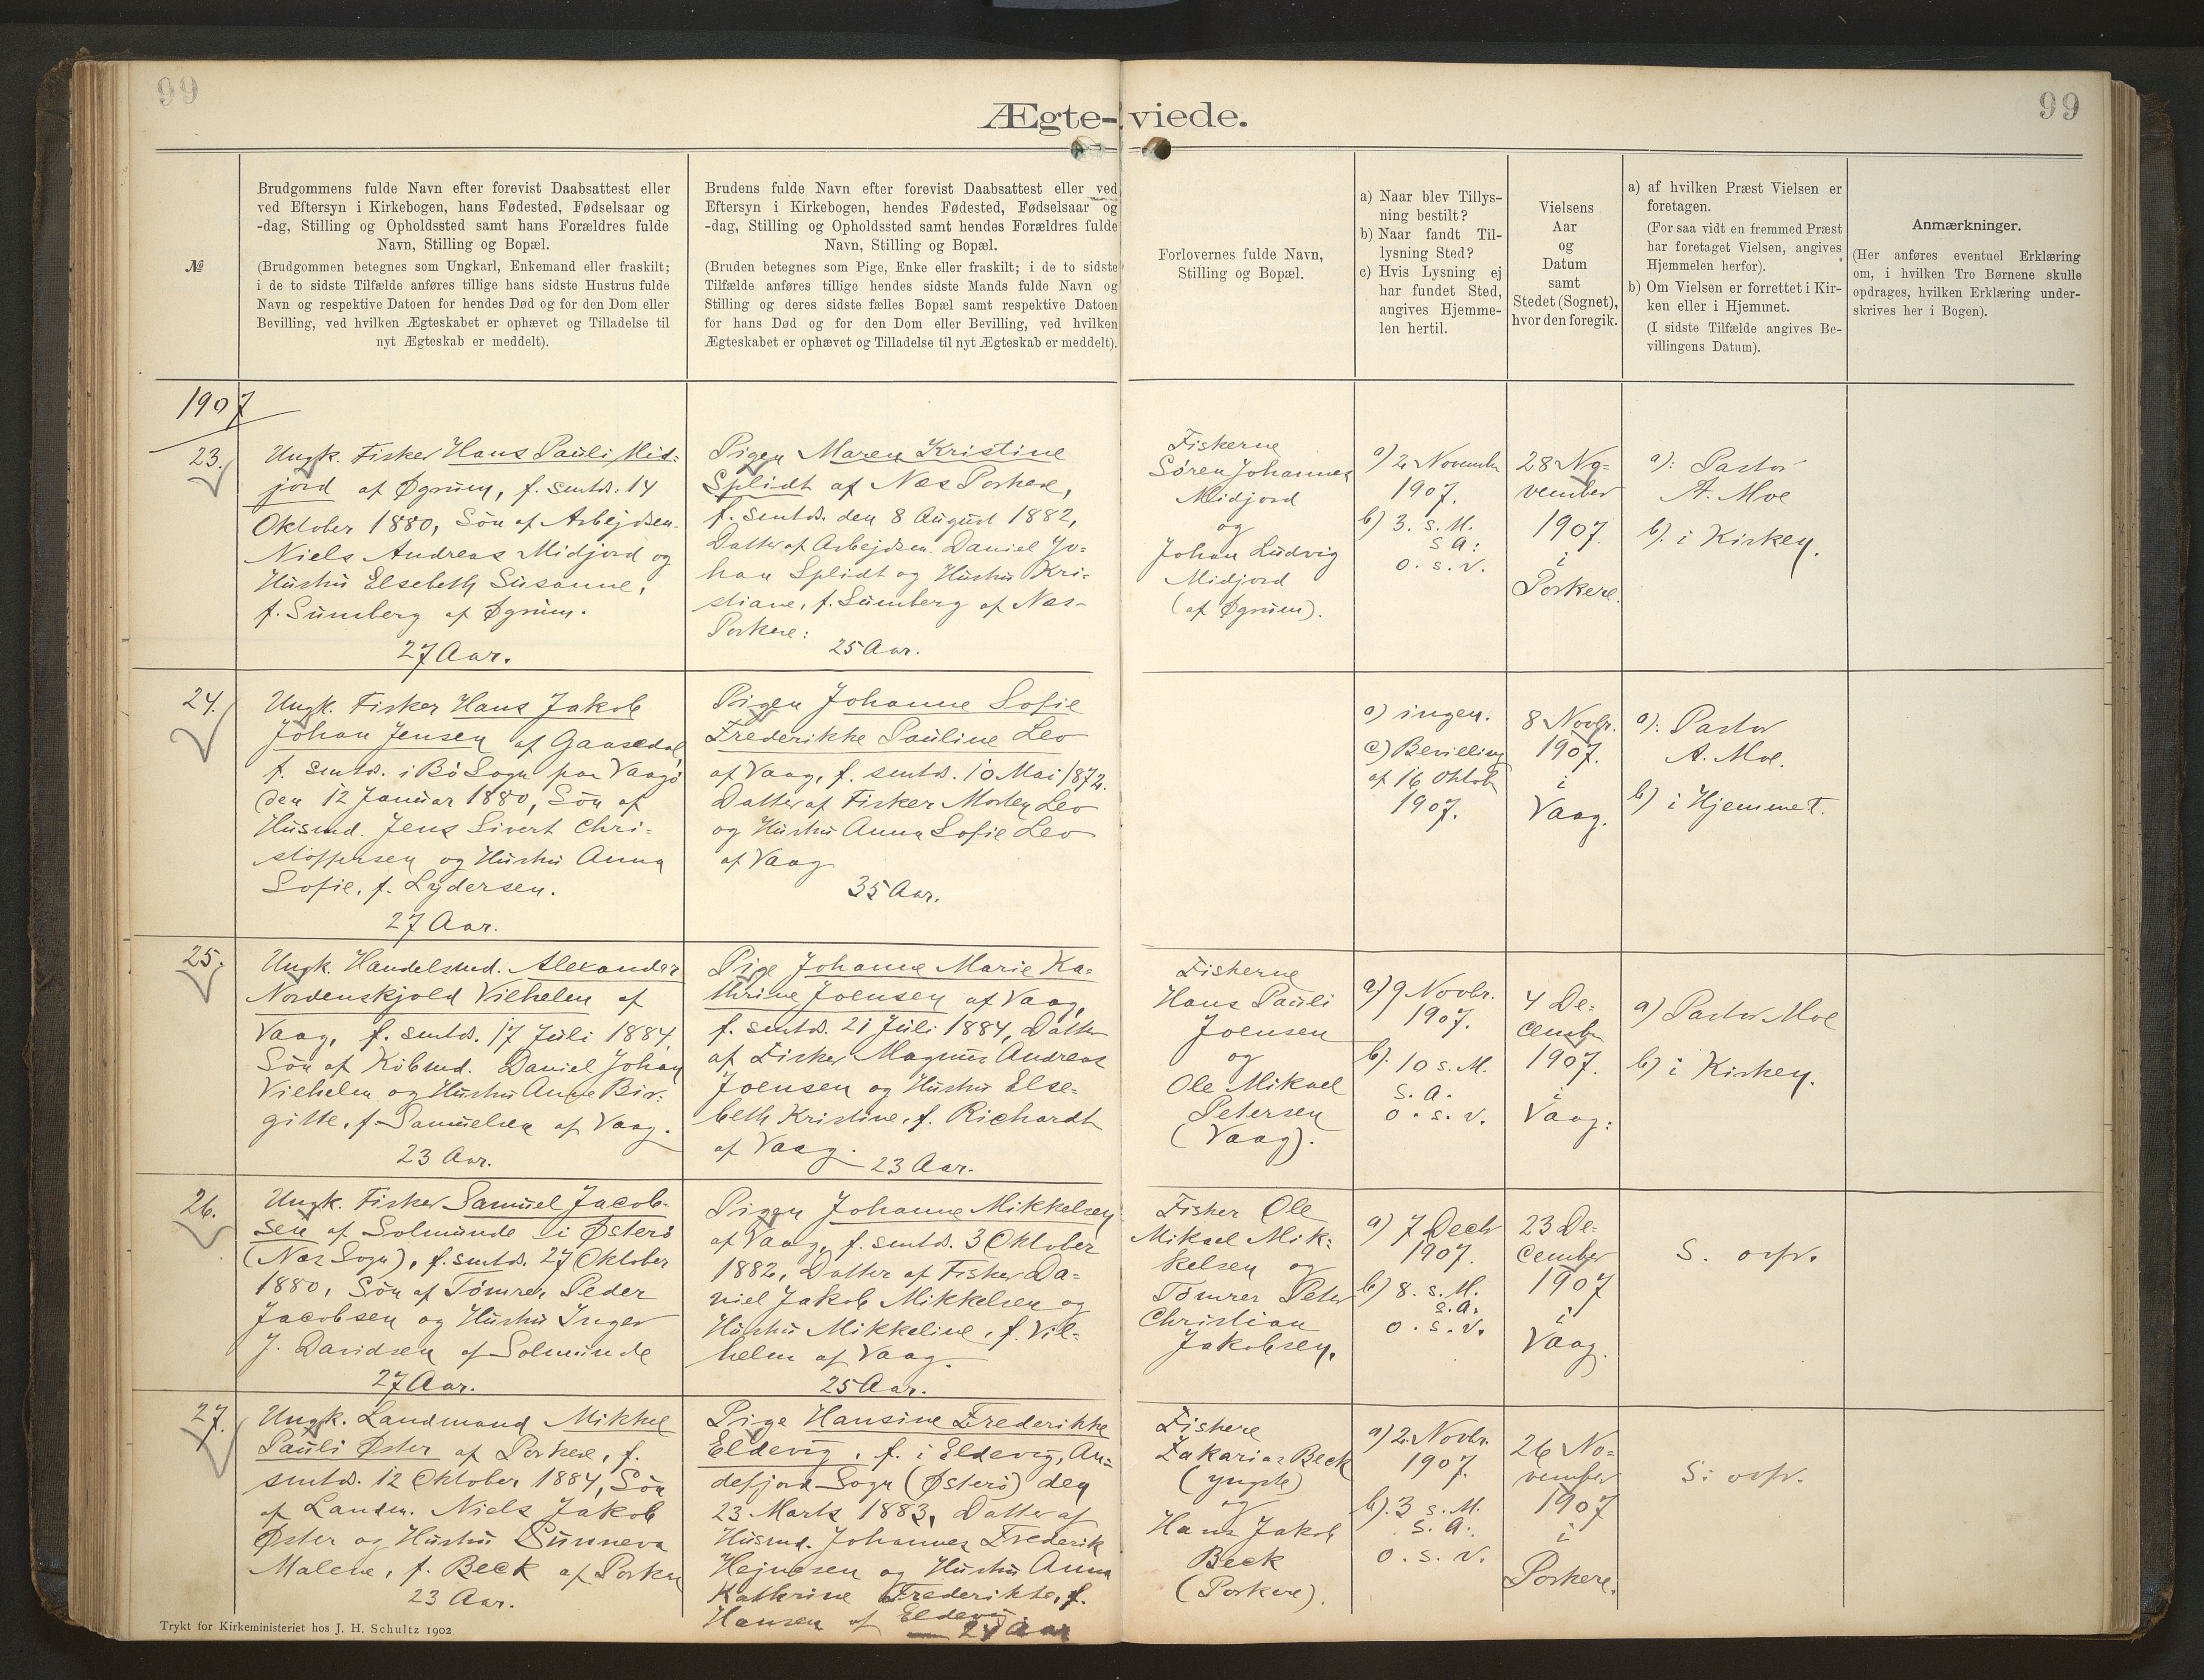 99
99
Ægte-viede.
№
Brudgommens fulde Navn efter forevist Daabsattest eller
ved Eftersyn i Kirkebogen, hans Fødested, Fødselsaar og
-dag, Stilling og Opholdssted samt hans Forældres fulde
Navn, Stilling og Bopæl.
(Brudgommen betegnes som Ungkarl, Enkemand eller fraskilt;
i de to sidste Tilfælde anføres tillige hans sidste Hustrus fulde
Navn og respektive Datoen for hendes Død og for den Dom eller
Bevilling, ved hvilken Ægteskabet er ophævet og Tilladelse til
nyt Ægteskab er meddelt).
Brudens fulde Navn efter forevist Daabsattest eller ved
Eftersyn i Kirkebogen, hendes Fødested, Fødselsaar og
-dag, Stilling og Opholdssted samt hendes Forældres fulde
Navn, Stilling og Bopæl.
(Bruden betegnes som Pige, Enke eller fraskilt; i de to sidste
Tilfælde anføres tillige hendes sidste Mands fulde Navn og
Stilling og deres sidste fælles Bopæl samt respektive Datoen
for hans Død og for den Dom eller Bevilling, ved hvilken
Ægteskabet er ophævet og Tilladelse til nyt Ægteskab er meddelt).
Forlovernes fulde Navn,
Stilling og Bopæl.
a) Naar blev Tillys-
ning bestilt?
b) Naar fandt Til-
lysning Sted?
c) Hvis Lysning ej
har fundet Sted,
angives Hjemme-
len hertil.
Vielsens
Aar
og
Datum
samt
Stedet (Sognet),
hvor den foregik.
a) af hvilken Præst Vielsen er
foretagen.
(For saa vidt en fremmed Præst
har foretaget Vielsen, angives
Hjemmelen herfor).
b) Om Vielsen er forrettet i Kir-
ken eller i Hjemmet.
(I sidste Tilfælde angives Be-
villingens Datum).
Anmærkninger.
(Her anføres eventuel Erklæring
om, i hvilken Tro Børnene skulle
opdrages, hvilken Erklæring under-
skrives her i Bogen).
1907
23.
Ungk. Fisker Hans Pauli Mid-
jord af Øgrum, f. smtds. 14
Oktober 1880, Søn af Arbejdsm.
Niels Andreas Midjord og
Hustru Elsebeth Susanne,
f. Sumberg af Øgrum.
27 Aar.
Pigen Maren Kristine
Splidt af Næs Porkere,
f. smtds. den 8 August 1882,
Datter af Arbejdsm. Daniel Jo-
han Splidt og Hustru Kri-
stiane, f. Sumberg af Næs-
Porkere:
25 Aar.
Fiskerne
Søren Johannes
Midjord
og
Johan Ludvig
Midjord
(af Øgrum).
a) 2 Novembr
1907.
b) 3. s. M.
s A:
o. s. v.
28 No-
vember
1907.
i
Porkere.
a): Pastor
A. Moe
b). i Kirken.
24.
Ungk. Fisker Hans Jakob
Johan Jensen af Gaasedal,
f. smtds. i Bø Sogn paa Vaagø
den 12 Januar 1880, Søn af
Husmd. Jens Sivert Chri-
stoffersen og Hustru Anna
Sofie, f. Lydersen.
27 Aar.
Pigen Johanne Sofie
Frederikke Pauline Leo
af Vaag, f. smtds. 10 Mai 1872.
Datter af Fisker Morten Leo
og Hustru Anna Sofie Leo
af Vaag
35 Aar.
a) ingen.
c) Bevilling
af 16 Oktob
1907.
8 Novbr.
1907.
i
Vaag.
a): Pastor
A. Moe.
b) i Hjemmet.
25.
Ungk. Handelsmd. Alexander
Nordenskjold Vilhelm af
Vaag, f. smtds. 17 Juli 1884,
Søn af Købmd. Daniel Johan
Vilhelm og Hustru Anne Bir-
gitte, f. Samuelsen af Vaag.
23 Aar.
Pige Johanne Marie Ka-
thrine Joensen af Vaag,
f. smtds. 21 Juli 1884, Datter
af Fisker Magnus Andreas
Joensen og Hustru Else-
beth Kristine, f. Richardt
af Vaag.
23 Aar.
Fiskerne
Hans Pauli
Joensen
og
Ole Mikael
Petersen
(Vaag).
a) 9 Novbr.
1907.
b). 10 s. M.
s. a.
o. s. v.
4 De-
cembr
1907.
i
Vaag:
a) Pastor Moe
b) i Kirken.
26.
Ungk. Fisker Samuel Jacob-
sen af Solmunde i Østerø
(Næs Sogn), f. smtds. 27 Oktober
1880, Søn af Tømrer Peder
Jacobsen og Hustru Inger
J. Davidsen af Solmunde
27 Aar.
Pigen Johanne Mikkelsen
af Vaag, f. smtds. 3 Oktober
1882, Datter af Fisker Da-
niel Jakob Mikkelsen og
Hustru Mikkeline, f. Vil-
helm af Vaag.
25 Aar.
Fisker Ole
Mikael Mik-
kelsen og
Tømrer Peter
Christian
Jakobsen.
a) 7 Decbr
1907.
b) 8. s. M.
s. a.
o. s. v.
23 De-
cember
1907
i
Vaag.
S. ovfr.
27.
Ungk. Landmand Mikkel
Pauli Øster af Porkere, f.
smtds. 12 Oktober 1884, Søn
af Landm. Niels Jakob
Øster og Hustru Sunneva
Malene, f. Beck af Porkere
23 Aar.
Pige Hansine Frederikke
Eldevig, f. i Eldevig, An-
defjord Sogn (Østerø) den
23 Marts 1883, Datter af
Husmd. Johannes Frederik
Hejnesen og Hustru Anna
Kathrine Frederikke, f.
Hansen af Eldevig.
24 Aar
Fiskere
Zakarias Beck
(yngste)
og
Hans Jakob
Beck
(Porkere).
a) 2. Novbr.
1907.
b). 3 s. M.
s. A.
o. s. v.
26 No-
vember
1907
i
Porkere.
S: ovfr.
Trykt for Kirkeministeriet hos J. H. Schultz 1902